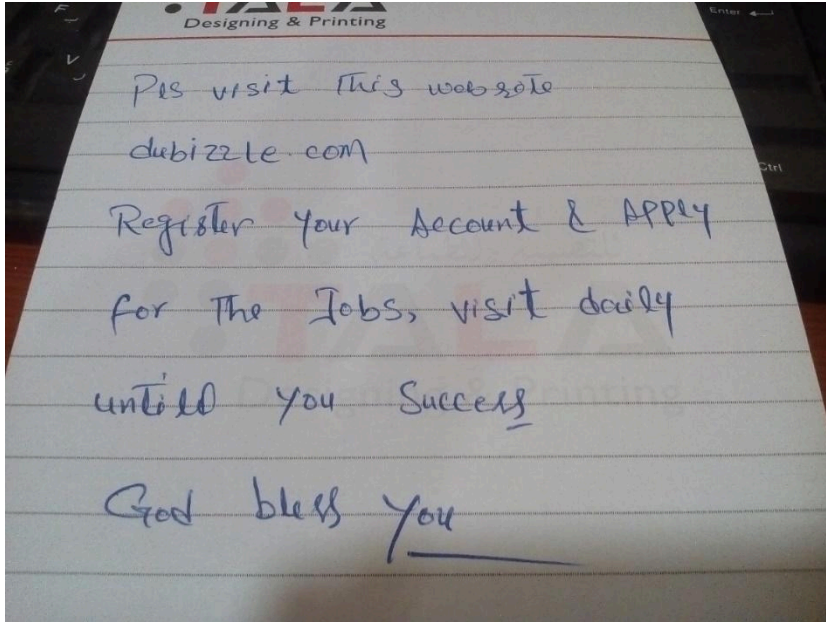 TALA
Designing & Printing
Pls visit This website
dubizzle.com
Register Your Account & Apply
for The Jobs, visit daily
untill you Success
God bless you
TALA
Designing & Printing
F
V
Enter
Ctrl